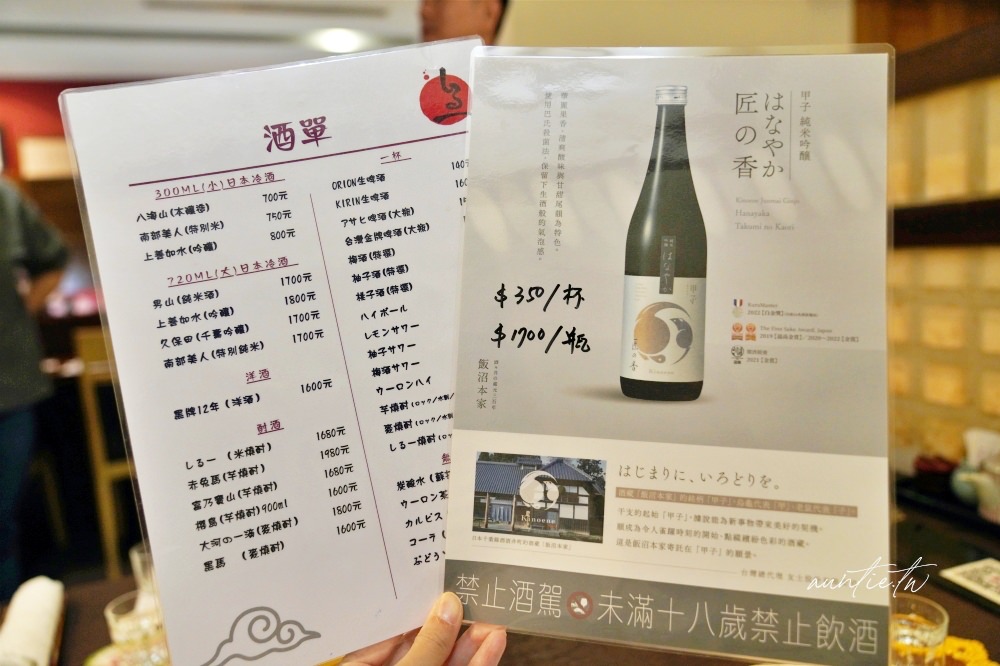 酒單
300ML(小)日本冷酒
八海山(本釀造) 700元
南部美人(特別米) 750元
上善如水(吟釀) 800元
720ML(大)日本冷酒
男山(純米酒) 1700元
上善如水(吟釀) 1800元
久保田(千壽吟釀) 1700元
南部美人(特別純米) 1700元
洋酒
黑牌12年(洋酒) 1600元
酎酒
しるー (米燒酎) 1680元
赤兔馬(芋燒酎) 1980元
富乃寶山(芋燒酎) 1680元
櫻島(芋燒酎)900ml 1600元
大河の一滴(麥燒酎) 1800元
黑馬 (麥燒酎) 1600元
一杯
ORION生啤酒 140
KIRIN生啤酒 160
アサヒ啤酒(大瓶)
台灣金牌啤酒(大瓶)
梅酒(特選)
柚子酒(特選)
桃子酒(特選)
ハイボール
レモンサワー
柚子サワー
梅酒サワー
ウーロンハイ
芋燒酎(ロック/水割/
麥燒酎(ロック/水割
しるー燒酎(ロッ
炭酸水(蘇
ウーロン茶
カルピス
コーラ(
ぶどう
しる
甲子 純米吟醸
はなやか
匠の香
Kinoene Junmai Ginjo
Hanayaka
Takumi no Kaori
使用巴氏殺菌法,保留下生酒般的氣泡感。
$350/杯
$1700/瓶
飯沼本家
甲子
はなやか
匠の香
Kinoene
KuraMaster
2022【白金獎】
The Fine Sake Award, Japan
2019【最高金賞】/2020~2022【金賞】
2021【金賞】
はじまりに、いろどりを。
干支的起始「甲子」,據說能為新事物帶來美好的契機。
願成為令人雀躍時刻的開始、點綴繽紛色彩的酒藏。
這是飯沼本家寄託在「甲子」的願景。
Kinoene
日本千葉縣酒酒井町的酒藏「飯沼本家」
禁止酒駕 未滿十八歲禁止飲酒
auntie.tw